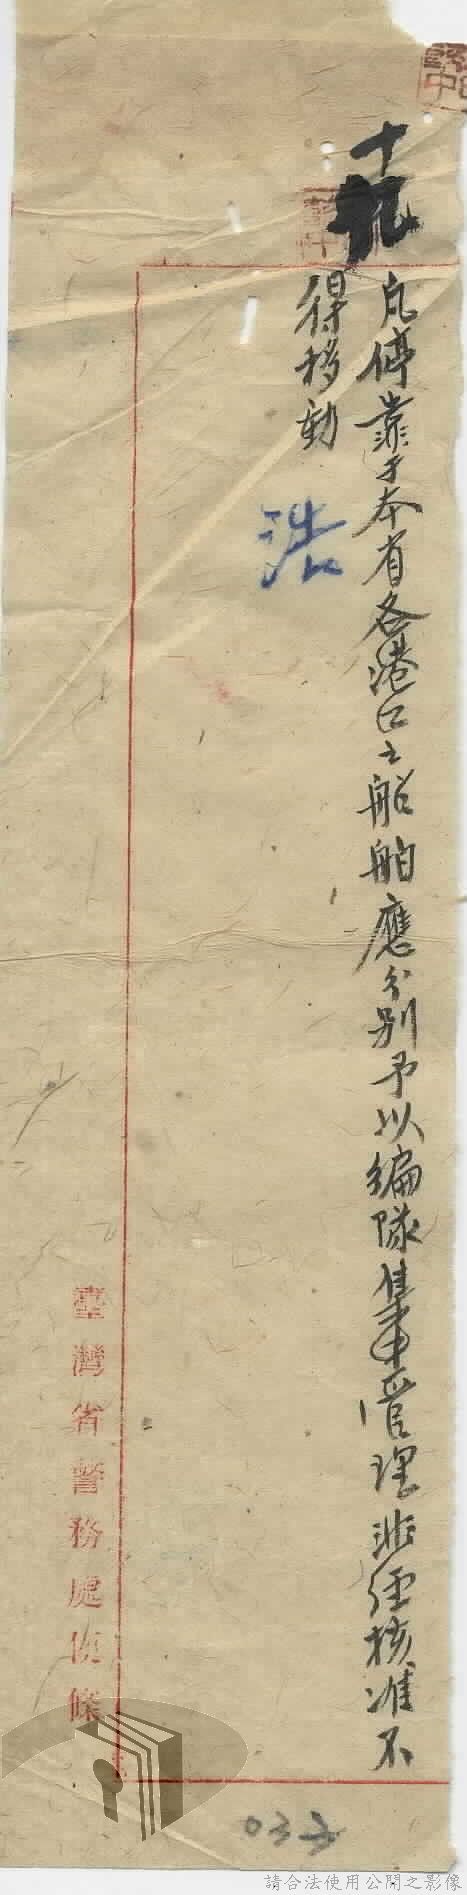 十
凡停靠于本省各港口之船舶應分別予以編隊集中管理非經核准不
得移動
浩
臺灣省警務處便條
請合法使用公開之影像